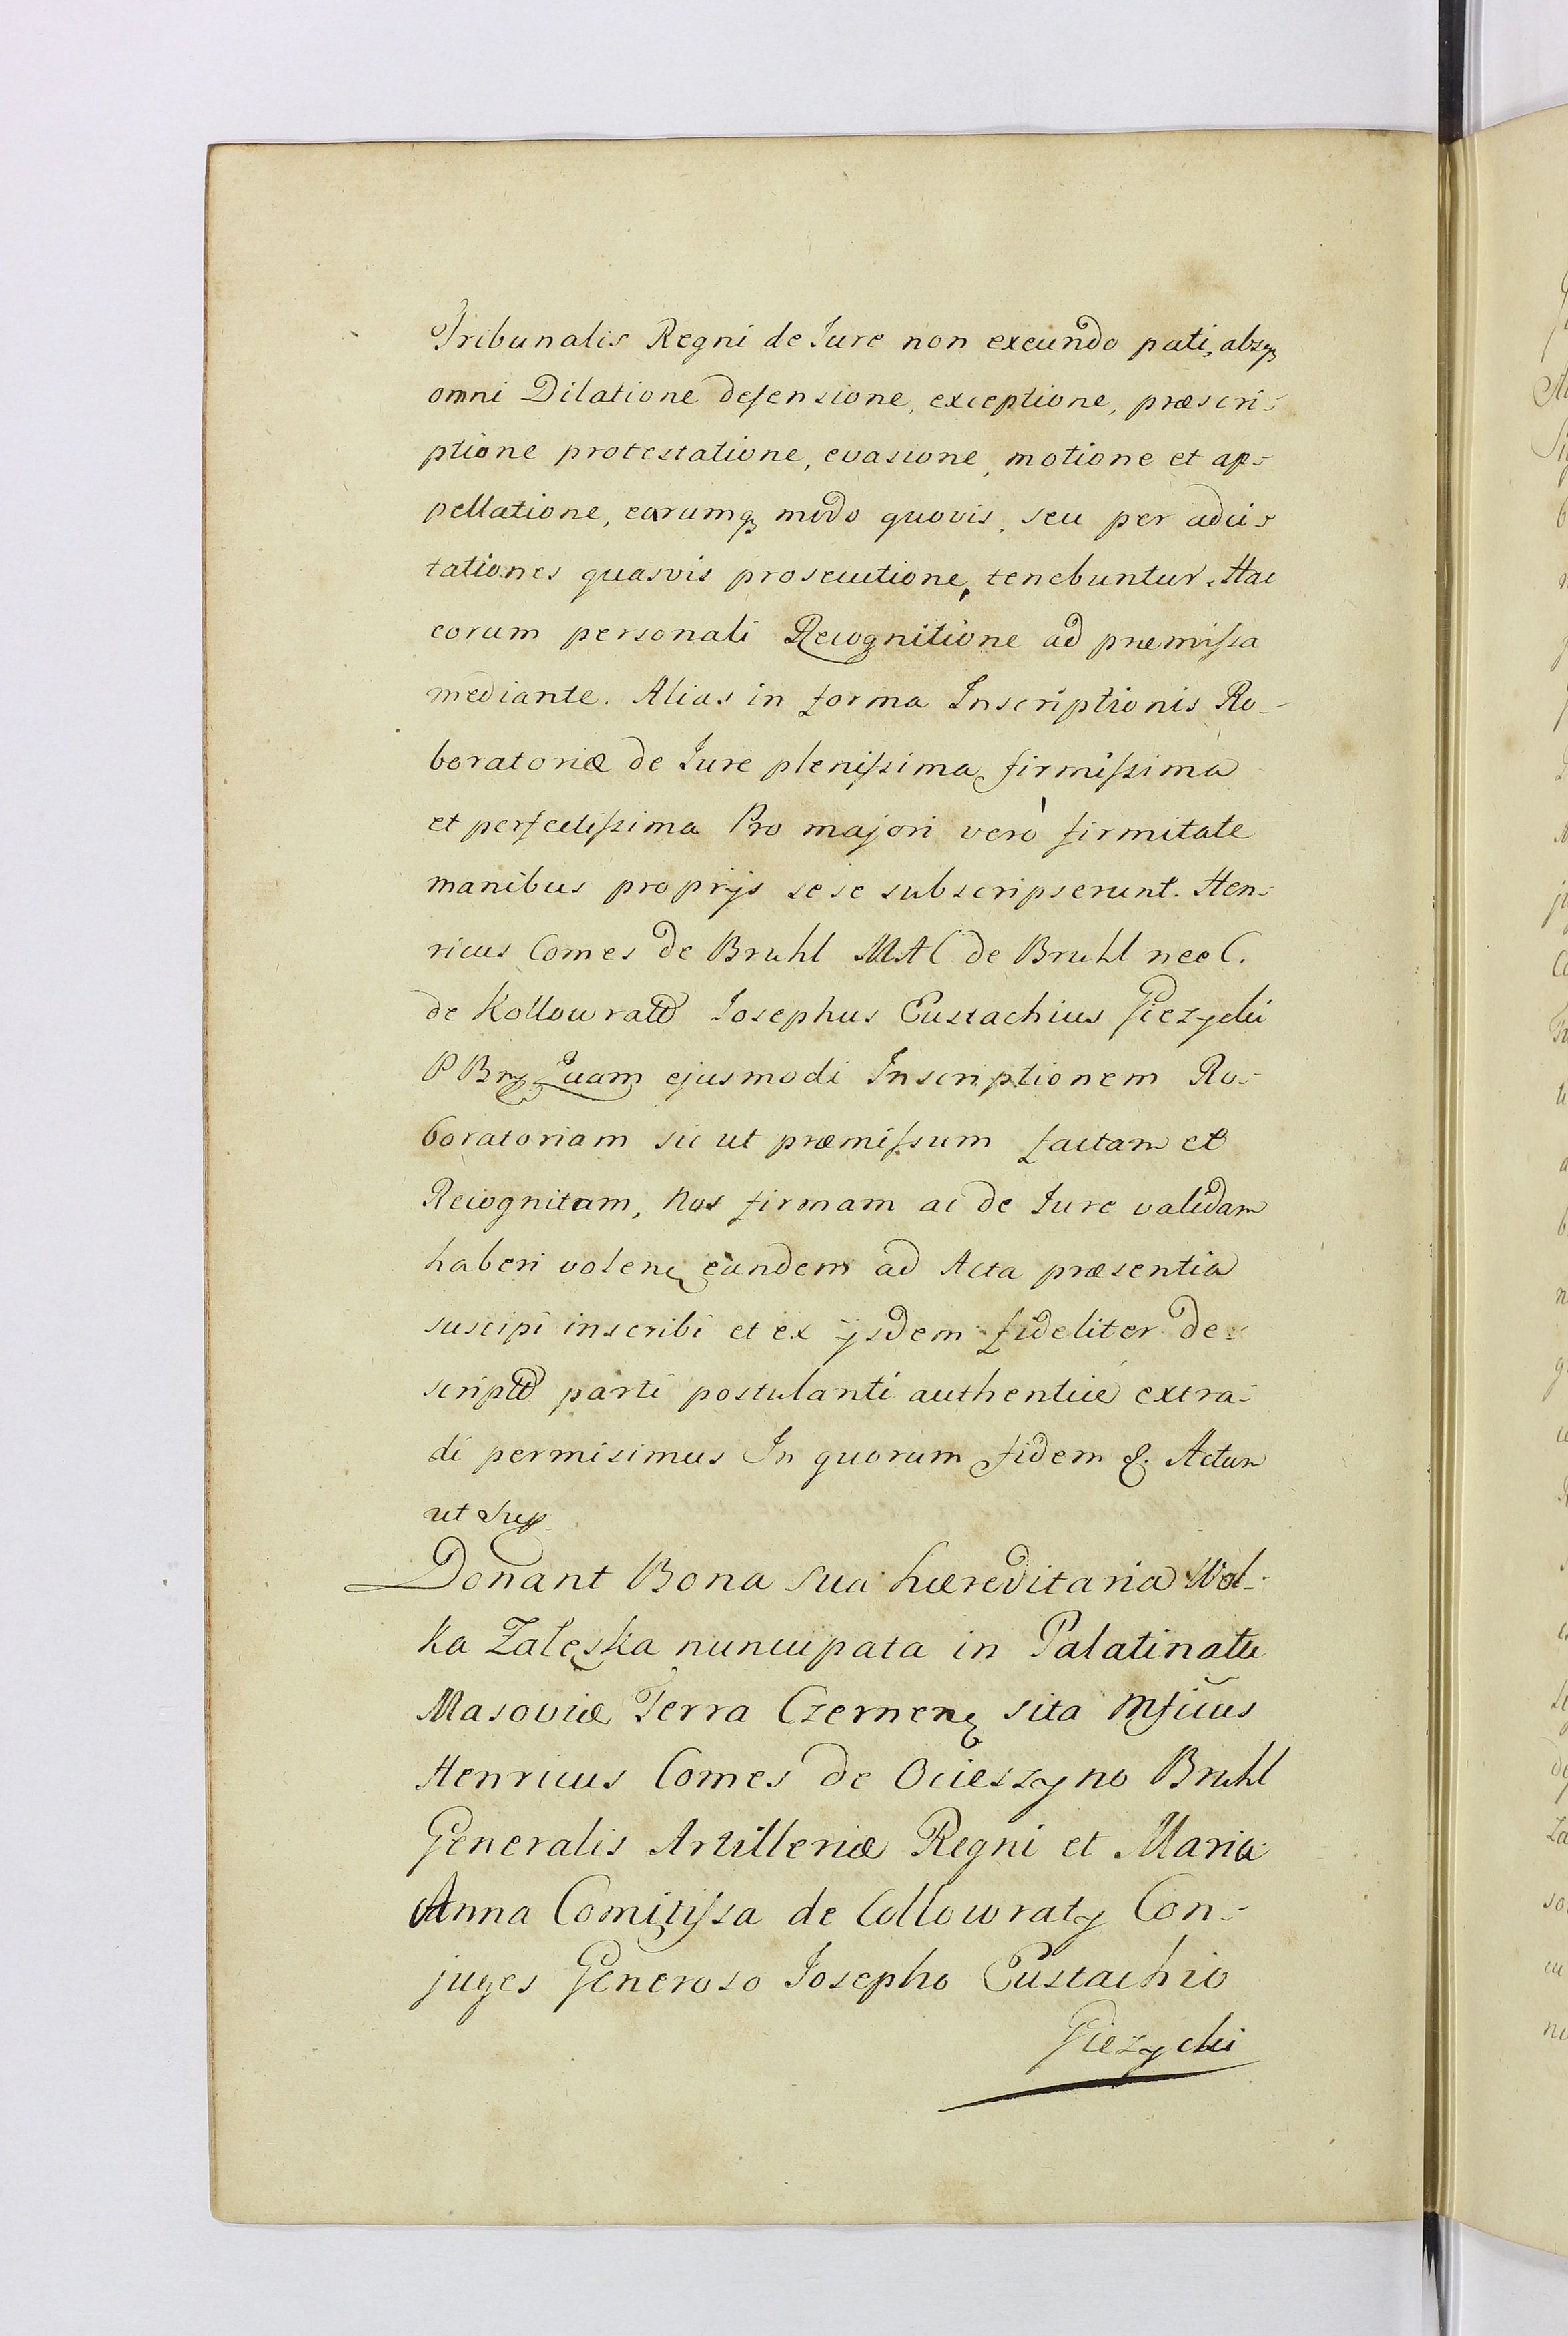 Tribunalis Regni de Jure non exeundo pati, absqꝫ
omni Dilatione defensione, exceptione, præscri-
ptione protestatione, evasione, motione et ap-
pellatione, earumqꝫ modo quovis, seu per adci-
tationes quasvis prosecutione, tenebuntur. Hac
eorum personali Recognitione ad præmissa
mediante. Alias in forma Inscriptionis Ro-
boratoriæ de Jure plenissima, firmissima
et perfectissima Pro majori verò firmitate
manibus proprijs sese subscripserunt. Hen-
ricus Comes de Bruhl MAC de Bruhl nee C.
de Kollowratt Josephus Eustachius Giezycki
P Quam ejusmodi Inscriptionem Ro-
boratoriam sic ut præmissum factam et
Recognitam, Nos firmam ac de Jure validam
haberi volenꝫ eandem ad Acta præsentia
suscipi inscribi et ex ijsdem fideliter de-
script parti postulanti authentice extra-
di permisimus In quorum fidem &. Actum
ut Sup
Donant Bona sua hæreditaria Wol-
ka Zaleska nuncupata in Palatinatu
Masoviæ Terra Czernenꝫ sita Mficus
Henricus Comes de Ocieszyno Bruhl
Generalis Artilleriæ Regni et Maria
Anna Comitissa de Collowraty Con-
juges Generoso Josepho Eustachio
Giezycki